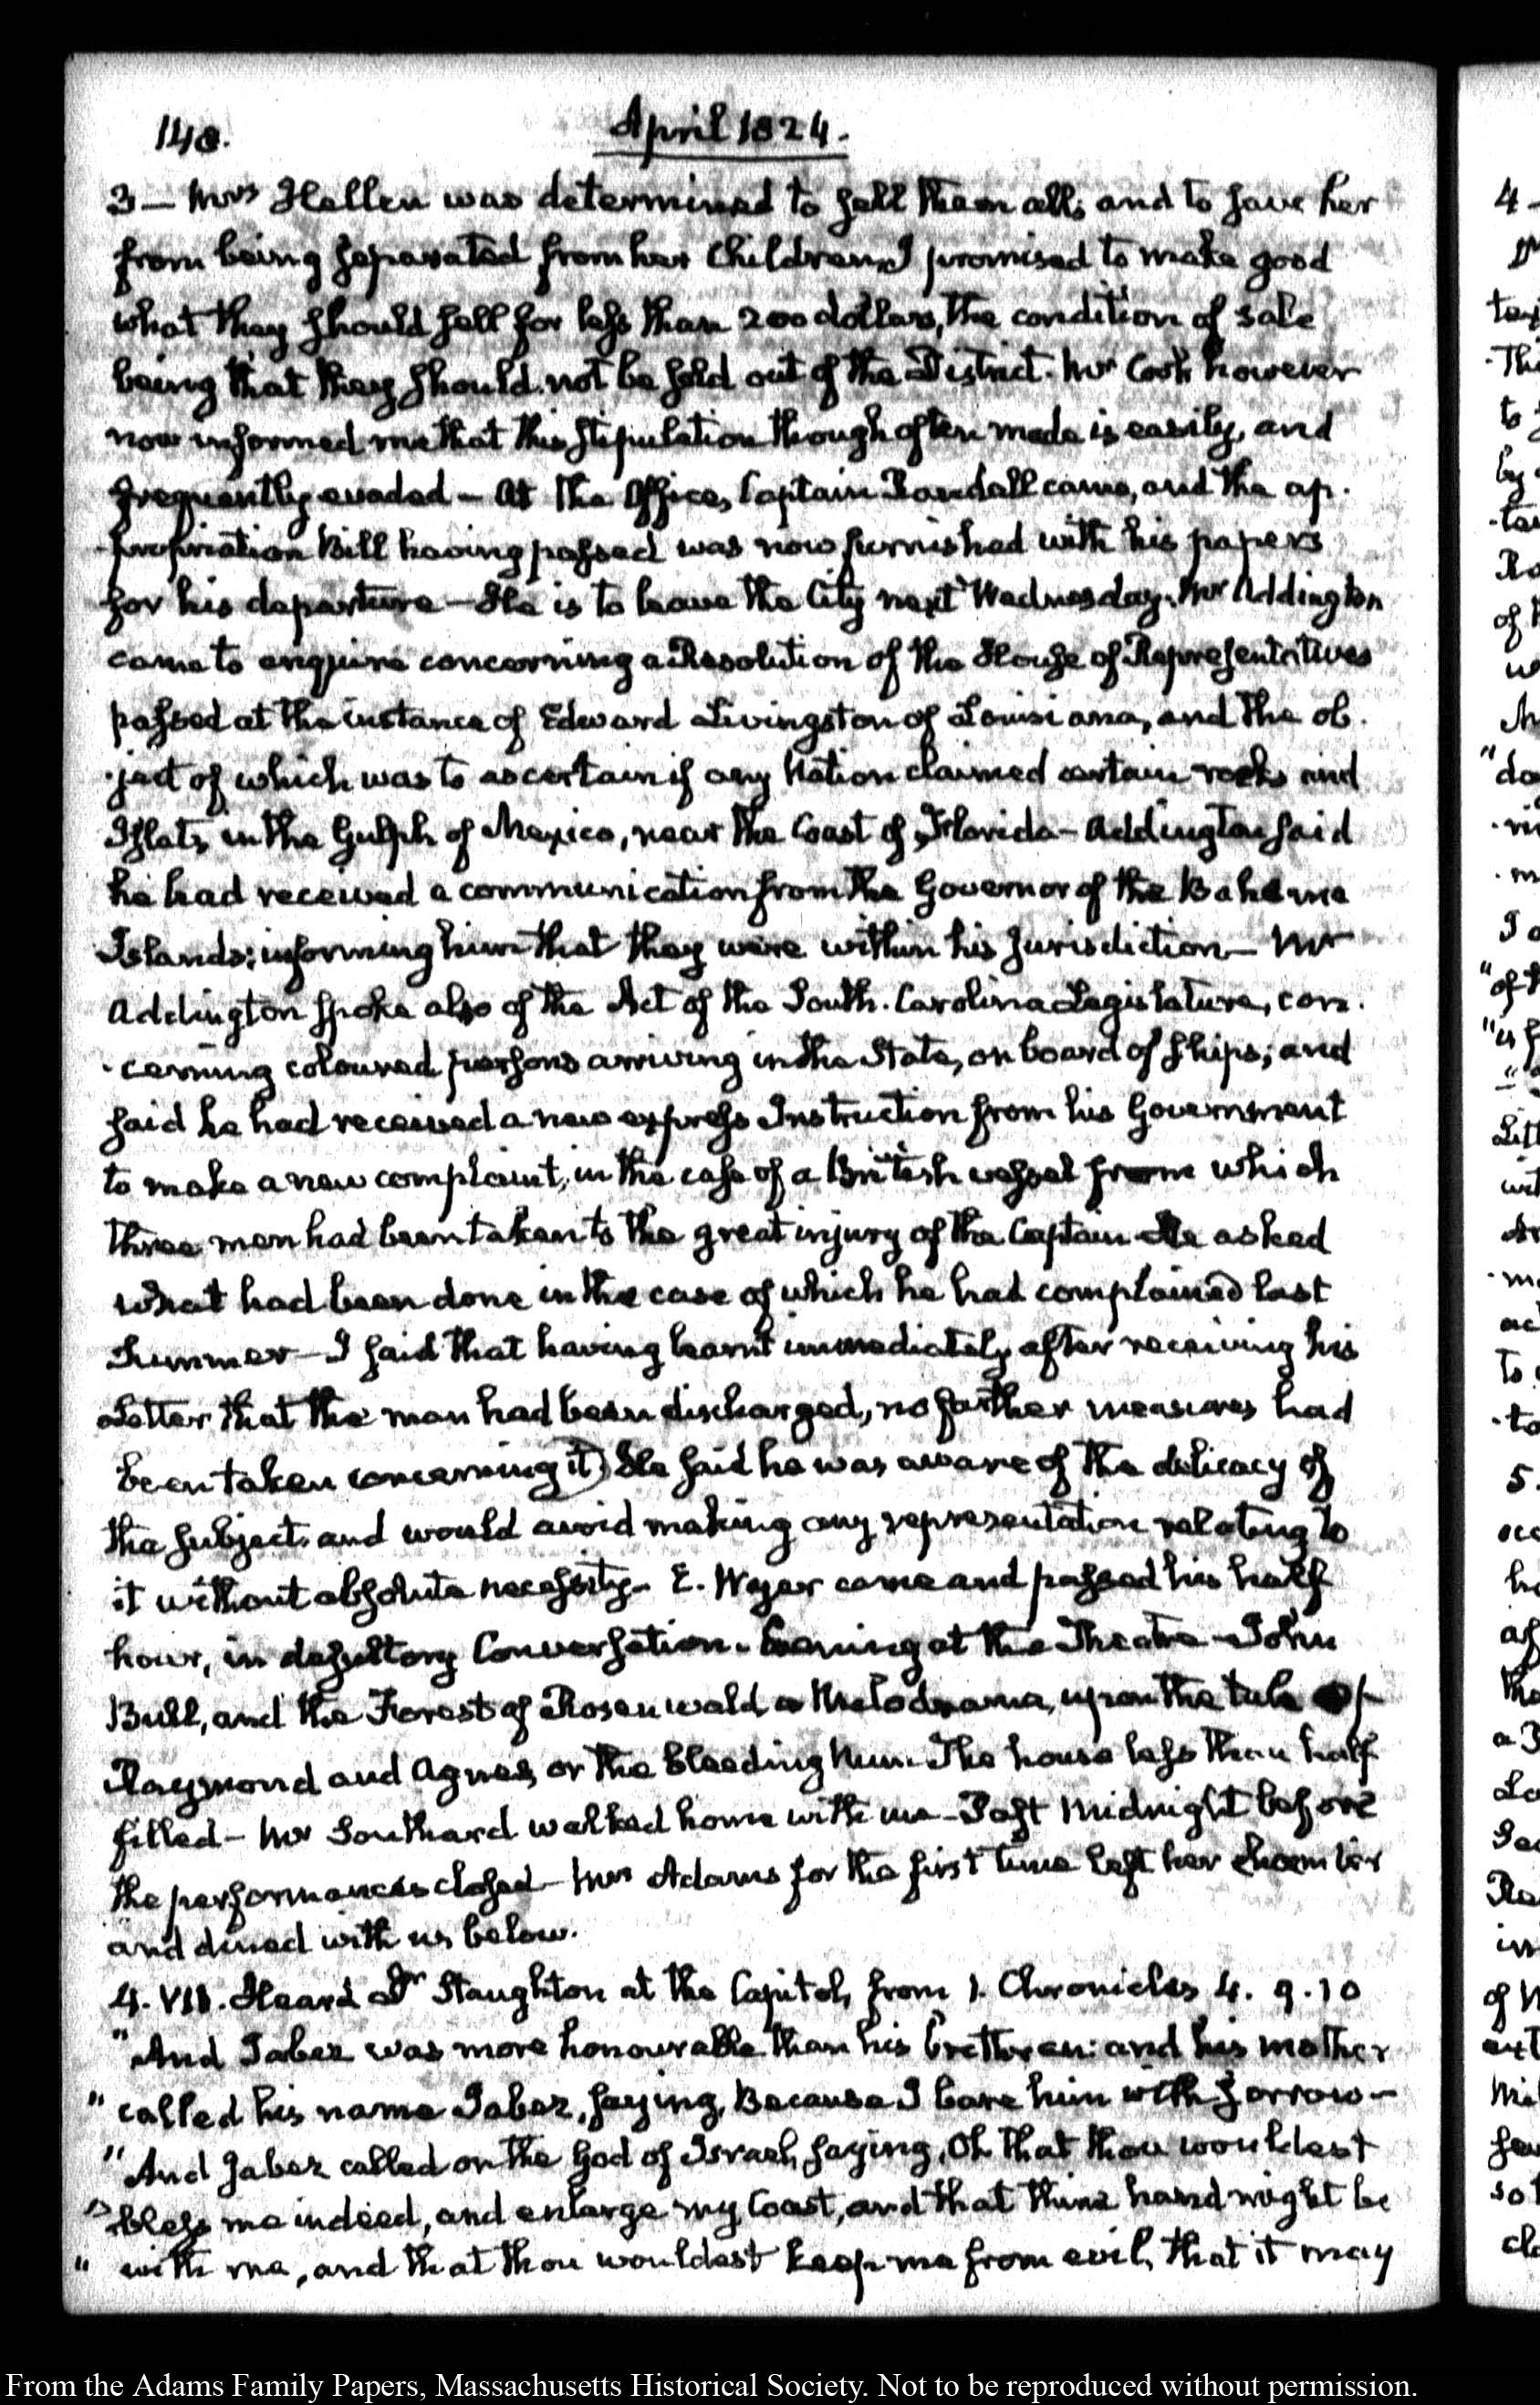 148.
April 1824.
3 — Mrs Hellen was determined to sell them all; and to save her
from being separated from her Children, I promised to make good
what they should sell for less than 200 dollars, the condition of sale
being that they should not be sold out of the District. Mr Cook however
now informed me that this stipulation though often made is easily, and
frequently evaded — At the Office, Captain Randall came, and the ap-
-propriation Bill having passed was now furnished with his papers
for his departure — He is to leave the City next Wednesday. Mr Addington
came to enquire concerning a Resolution of the House of Representatives
passed at the instance of Edward Livingston of Louisiana, and the ob-
-ject of which was to ascertain if any Nation claimed certain rocks and
Islets, in the Gulph of Mexico, near the Coast of Florida — Addington said
he had received a communication from the Governor of the Bahama
Islands; informing him that they were within his Jurisdiction — Mr
Addington spoke also of the Act of the South-Carolina Legislature, con-
-cerning coloured persons arriving in the State, on board of ships; and
said he had received a new express Instruction from his Government
to make a new complaint, in the case of a British vessel from which
three men had been taken to the great injury of the Captain He asked
what had been done in the case of which he had complained last
Summer — I said that having learnt immediately after receiving his
Letter that the man had been discharged, no farther measures had
been taken concerning it) He said he was aware of the delicacy of
the subject, and would avoid making any representation relating to
it without absolute necessity — E. Wyer came and passed his half
hour, in desultory Conversation. Evening at the Theatre — John
Bull, and the Forest of Rosenwald a Melodrama, upon the tale of
Raymond and Agnes, or the bleeding Nun. The house less than half
filled — Mr Southard walked home with me — Past Midnight before
the performances closed — Mrs Adams for the first time left her chamber
and dined with us below.
4. VII. Heard Dr Staughton at the Capitol, from 1. Chronicles 4. 9.10
"And Jabez was more honourable than his brethren: and his mother
" called his name Jabez, saying, Because I bare him with sorrow —
" And Jabez called on the God of Israel, saying, Oh that thou wouldest
" bless me indeed, and enlarge my Coast, and that thine hand might be
" with me, and that thou wouldest keep me from evil, that it may
From the Adams Family Papers, Massachusetts Historical Society. Not to be reproduced without permission.